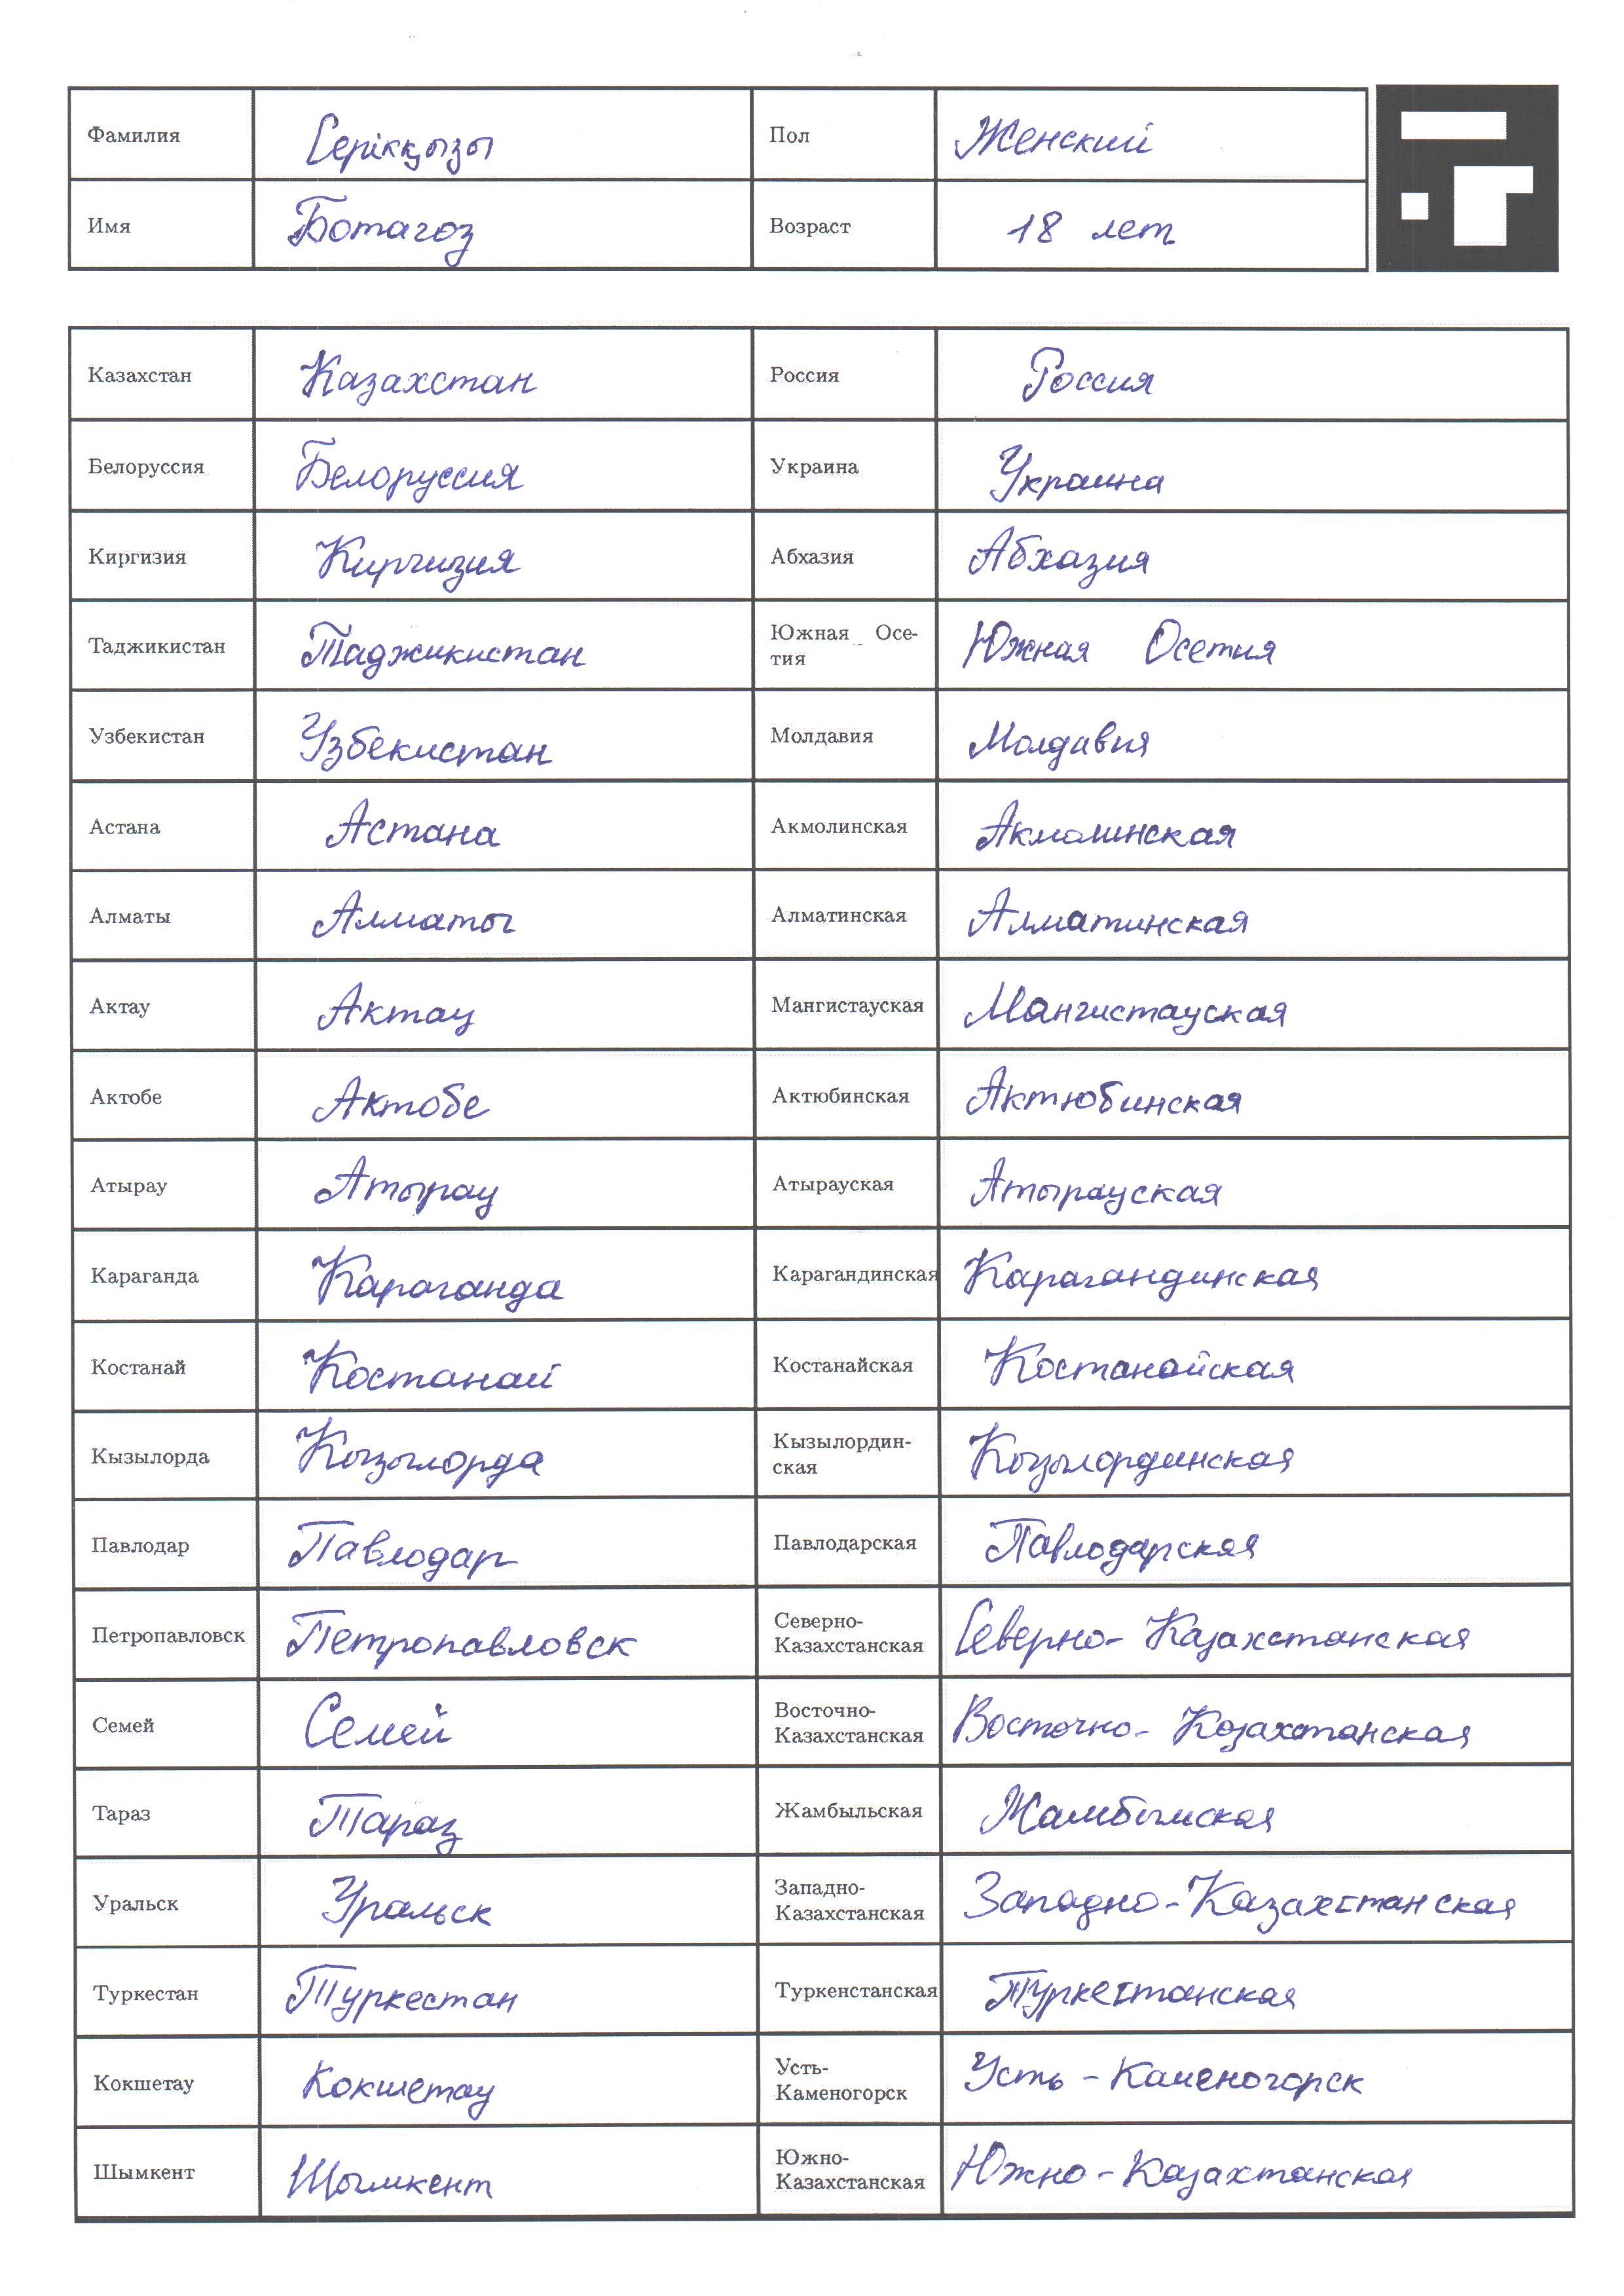 Фамилия Серікқызы Пол Женский
Имя Ботагоз Возраст 18 лет
Казахстан Казахстан Россия Россия
Белоруссия Белоруссия Украина Украина
Киргизия Киргизия Абхазия Абхазия
Таджикистан Таджикистан Южная Осе-
тия Южная Осетия
Узбекистан Узбекистан Молдавия Молдавия
Астана Астана Акмолинская Акмолинская
Алматы Алматы Алматинская Алматинская
Актау Актау Мангистауская Мангистауская
Актобе Актобе Актюбинская Актюбинская
Атырау Атырау Атырауская Атырауская
Караганда Караганда Карагандинская Карагандинская
Костанай Костанай Костанайская Костанайская
Кызылорда Кызылорда Кызылордин-
ская Кызылординская
Павлодар Павлодар Павлодарская Павлодарская
Петропавловск Петропавловск Северно-
Казахстанская Северно- Казахстанская
Семей Семей Восточно-
Казахстанская Восточно- Казахстанская
Тараз Тараз Жамбыльская Жамбылская
Уральск Уральск Западно-
Казахстанская Западно-Казахстанская
Туркестан Туркестан Туркенстанская Туркестанская
Кокшетау Кокшетау Усть-
Каменогорск Усть - Каменогорск
Шымкент Шымкент Южно-
Казахстанская Южно - Казахтанская